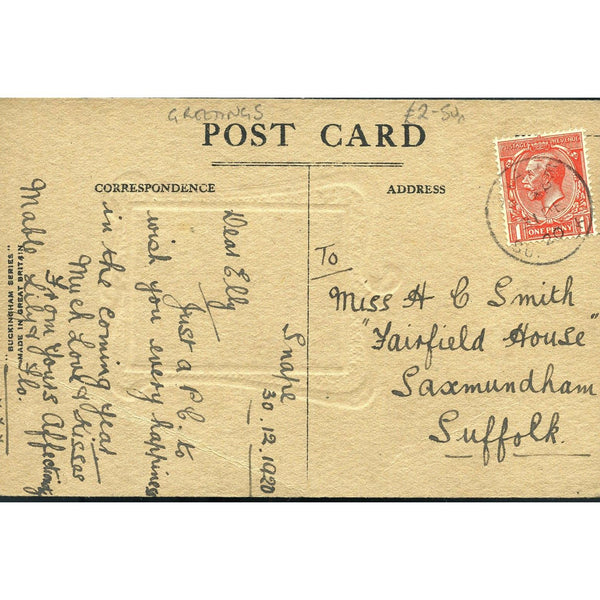 GREETINGS
£2-50p
POST CARD
CORRESPONDENCE
ADDRESS
POSTAGE REVENUE
1 ONE PENNY 1
20
"BUCKINGHAM SERIES"
MADE IN GREAT BRITAIN
Snape
30.12.1920
Dear Elly
Just a P.C. to
wish you every happiness
in the coming year
Much Love & Kisses
From Yours Affectionly
Mable Lily & Flo.
To
Miss H C Smith
"Fairfield House"
Saxmundham
Suffolk.